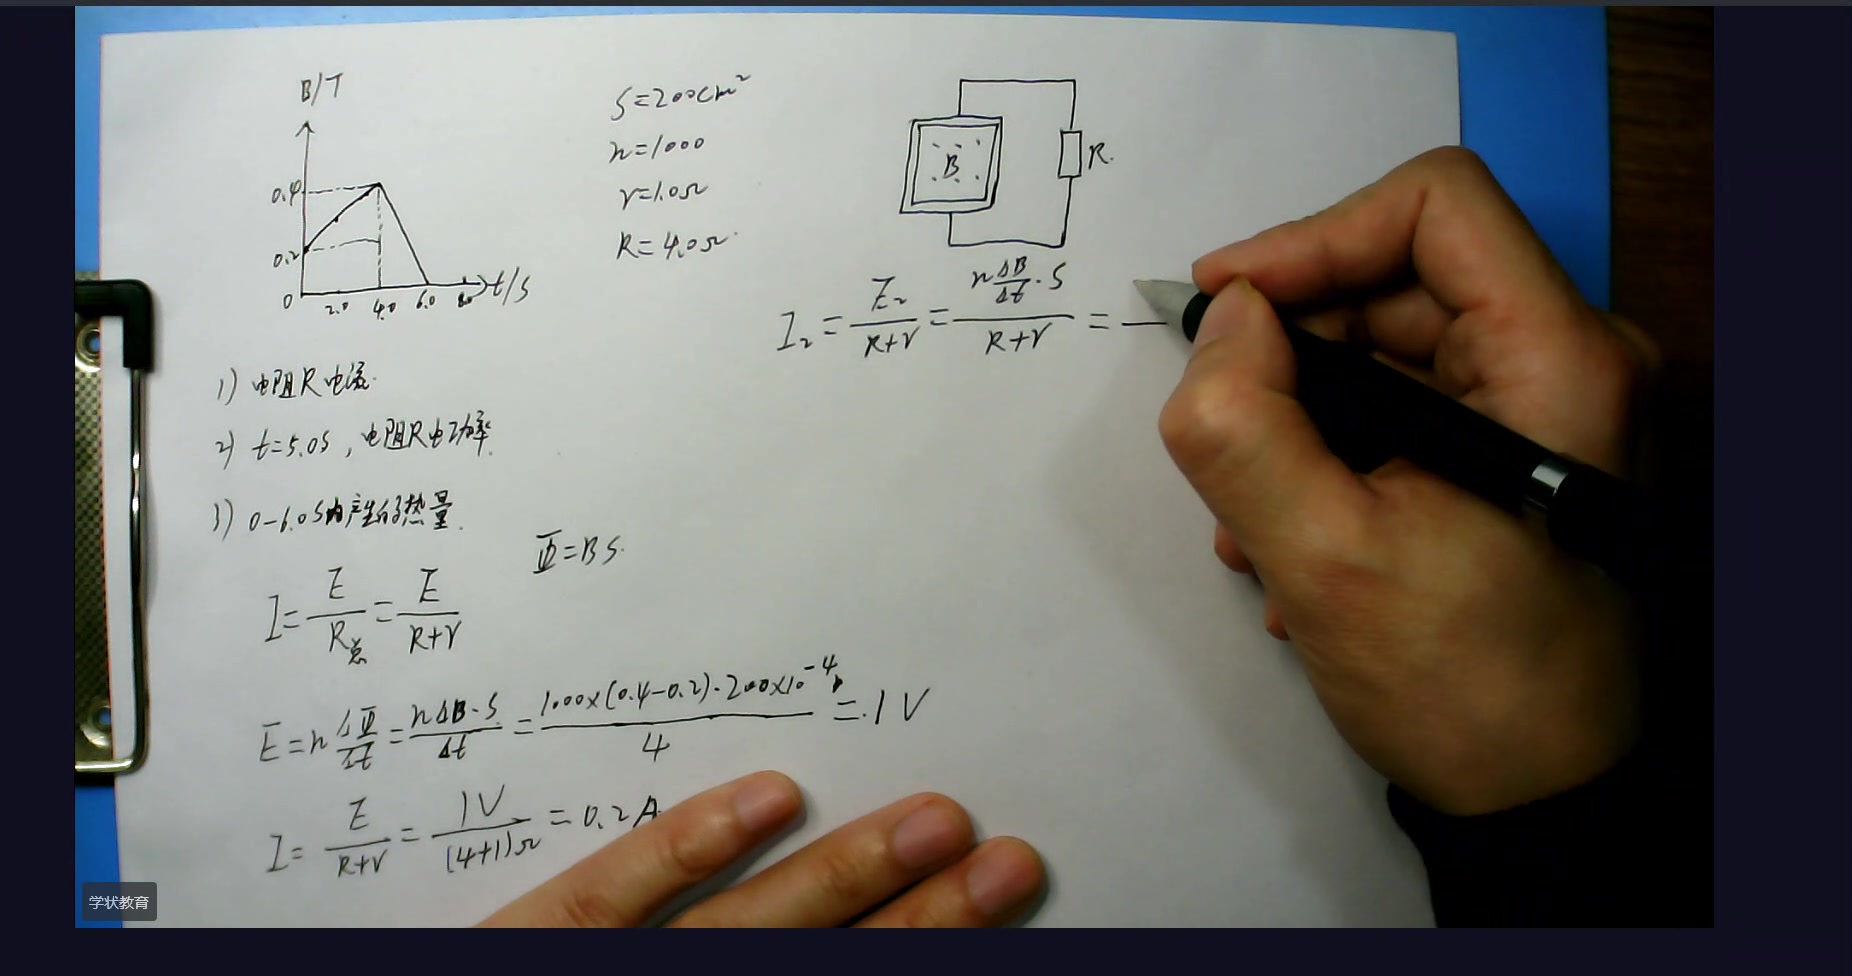 B/T
0.4
0.2
0
2.0
4.0
6.0
8.0
t/s
S=200cm²
n=1000
r=1.0Ω
R=4.0Ω
B
R.
I₂=E₂/(R+r)=(nΔB/Δt·S)/(R+r)=
1) 电阻R电流.
2) t=5.0s,电阻R电功率.
3) 0-6.0s内产生的热量.
Φ=BS.
I=E/R总=E/(R+r)
E=nΔΦ/Δt=nΔB·S/Δt=1000×(0.4-0.2)·200×10⁻⁴/4=1V
I=E/(R+r)=1V/(4+1)Ω=0.2A
学状教育